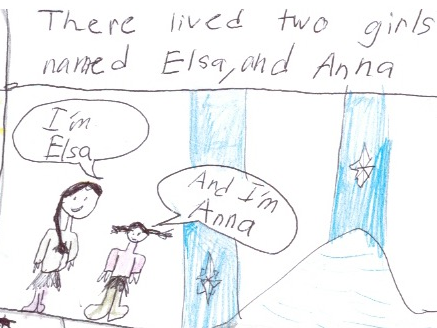 There lived two girls
named Elsa, and Anna
I'm
Elsa
And I'm
Anna